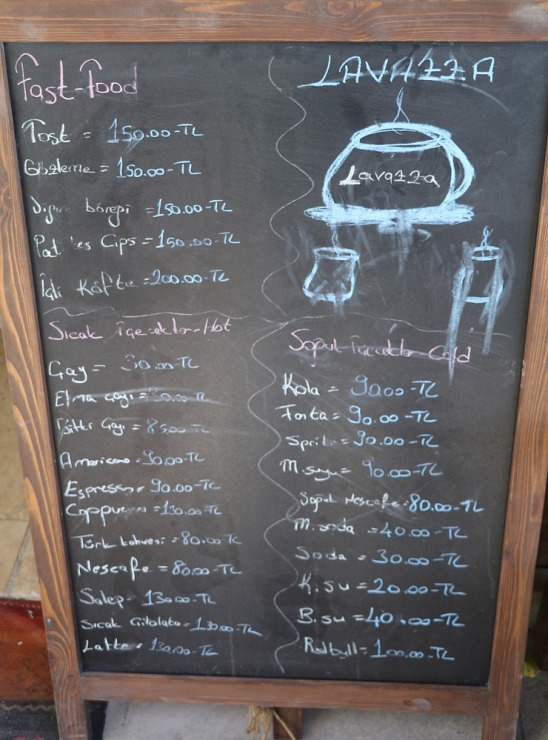 Fast-Food
Tost = 150.00-TL
Gözleme = 150.00-TL
böregi = 150.00-TL
Cips = 150.00-TL
İçli Köfte = 200.00-TL
Sıcak İçecekler-Hot
Çay = 30.00-TL
Elma çayı =
Çayı =
Americano = 90.00-TL
Espresso = 90.00-TL
= 130.00-TL
Türk kahvesi = 80.00-TL
Nescafe = 80.00-TL
Salep = 130.00-TL
Sıcak Çikolata = 130.00-TL
Latte = 130.00-TL
LAVAZZA
Lavazza
Soğuk İçecekler-Cold
Kola = 90.00-TL
Fanta = 90.00-TL
Sprite = 90.00-TL
M.suyu = 90.00-TL
Soğuk Nescafe = 80.00-TL
M.soda = 40.00-TL
Soda = 30.00-TL
K.su = 20.00-TL
B.su = 40.00-TL
Redbull = 100.00-TL